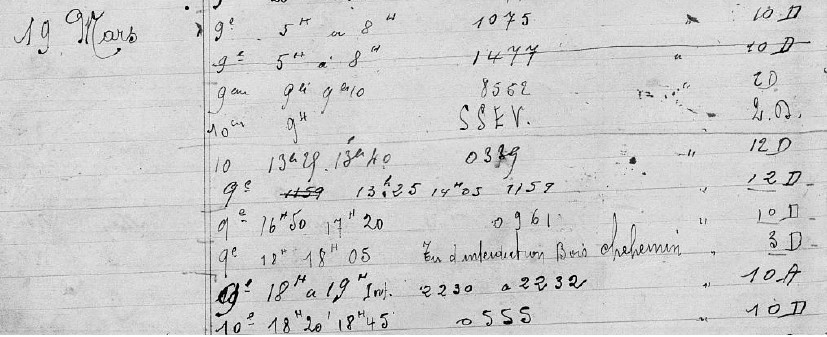 19 Mars 9e 5H à 8H 1075 " 10 D
9e 5H à 8H 1477 " 10 D
9em 9H 9H10 8562 " 2D
10em 9H SSEV. 2.D.
10 13H25 13H40 0339 " 12 D
9e 1159 13H25 14H05 1159 " 12 D
9e 16H50 17H20 0961 " 10 D
9e 18H 18H05 Tir d'interdiction Bois " 3 D
9e 18H à 19H Inf. 2230 à 2232 " 10 A
10e 18H20' 18H45 0555 " 10 D